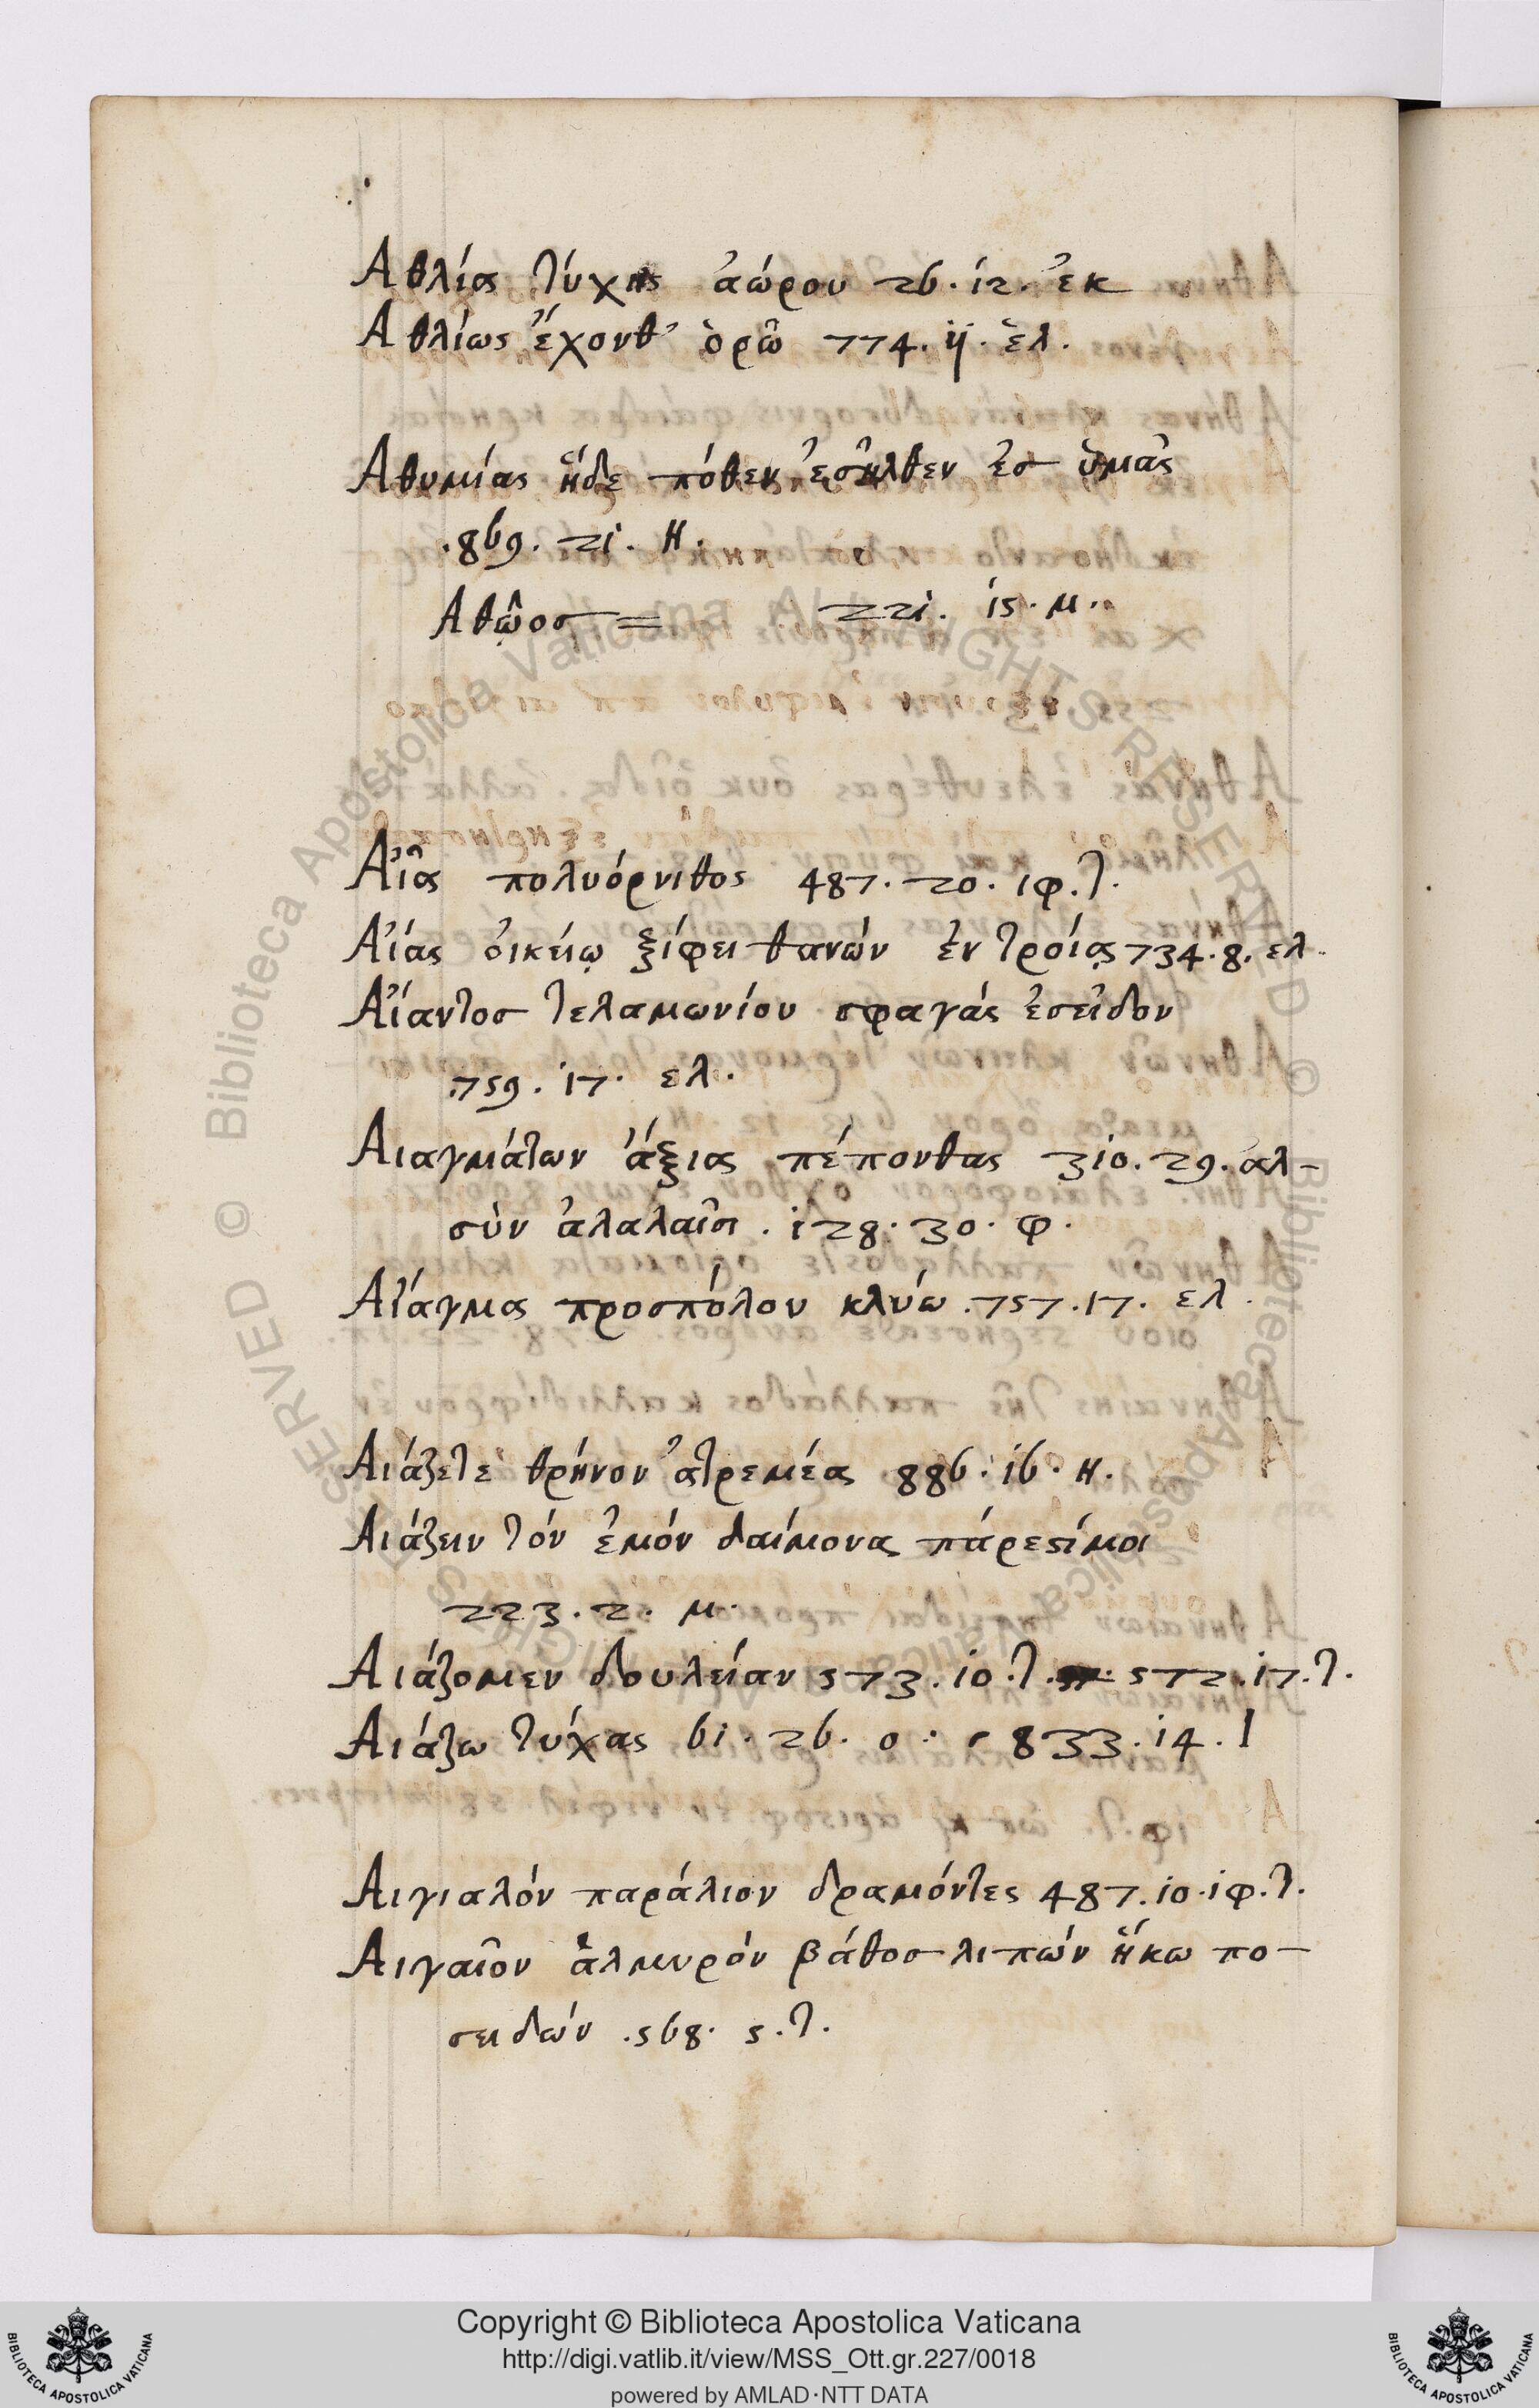 Αθλία τύχης ἀώρου 26. 12. ἐκ
Αθλίως ἔχονθ' ὁρῶ 774. ij. ἑλ.
Αθυμίας ἥδε πόθεν ἐσῆλθεν ἐσ ὑμᾶς
.869. 21. Η.
Αθῷοσ = 221. 15. μ.
Αἶα πολυόρνιθος 487. 20. ιφ. τ.
Αἴας οἰκείῳ ξίφει θανών ἐν τροίᾳ 734. 8. ελ.
Αἴαντοσ τελαμωνίου σφαγάς ἐσεῖδον
.759. 17. ελ.
Αιαγμάτων ἄξια πέπονθας 310. 29. αλ-
σύν ἀλαλαῖσι . 128. 30. φ.
Αἴαγμα προσπόλου κλύω .757. 17. ελ.
Αιάζετε θρήνον ἀτρεμέα 886. 16. Η.
Αιάζειν τόν ἐμόν δαίμονα πάρεστί μοι
223. 2. μ.
Αιάζομεν δουλείαν 573. 10. τ. 572. 17. τ.
Αιάζω τύχας 61. 26. ο. 833. 14. Ι
Αιγιαλόν παράλιον δραμόντες 487. 10. ιφ. τ.
Αιγαῖον ἁλμυρόν βάθοσ λιπών ἥκω πο-
σειδών .568. 5. τ.
Copyright © Biblioteca Apostolica Vaticana
http://digi.vatlib.it/view/MSS_Ott.gr.227/0018
powered by AMLAD·NTT DATA